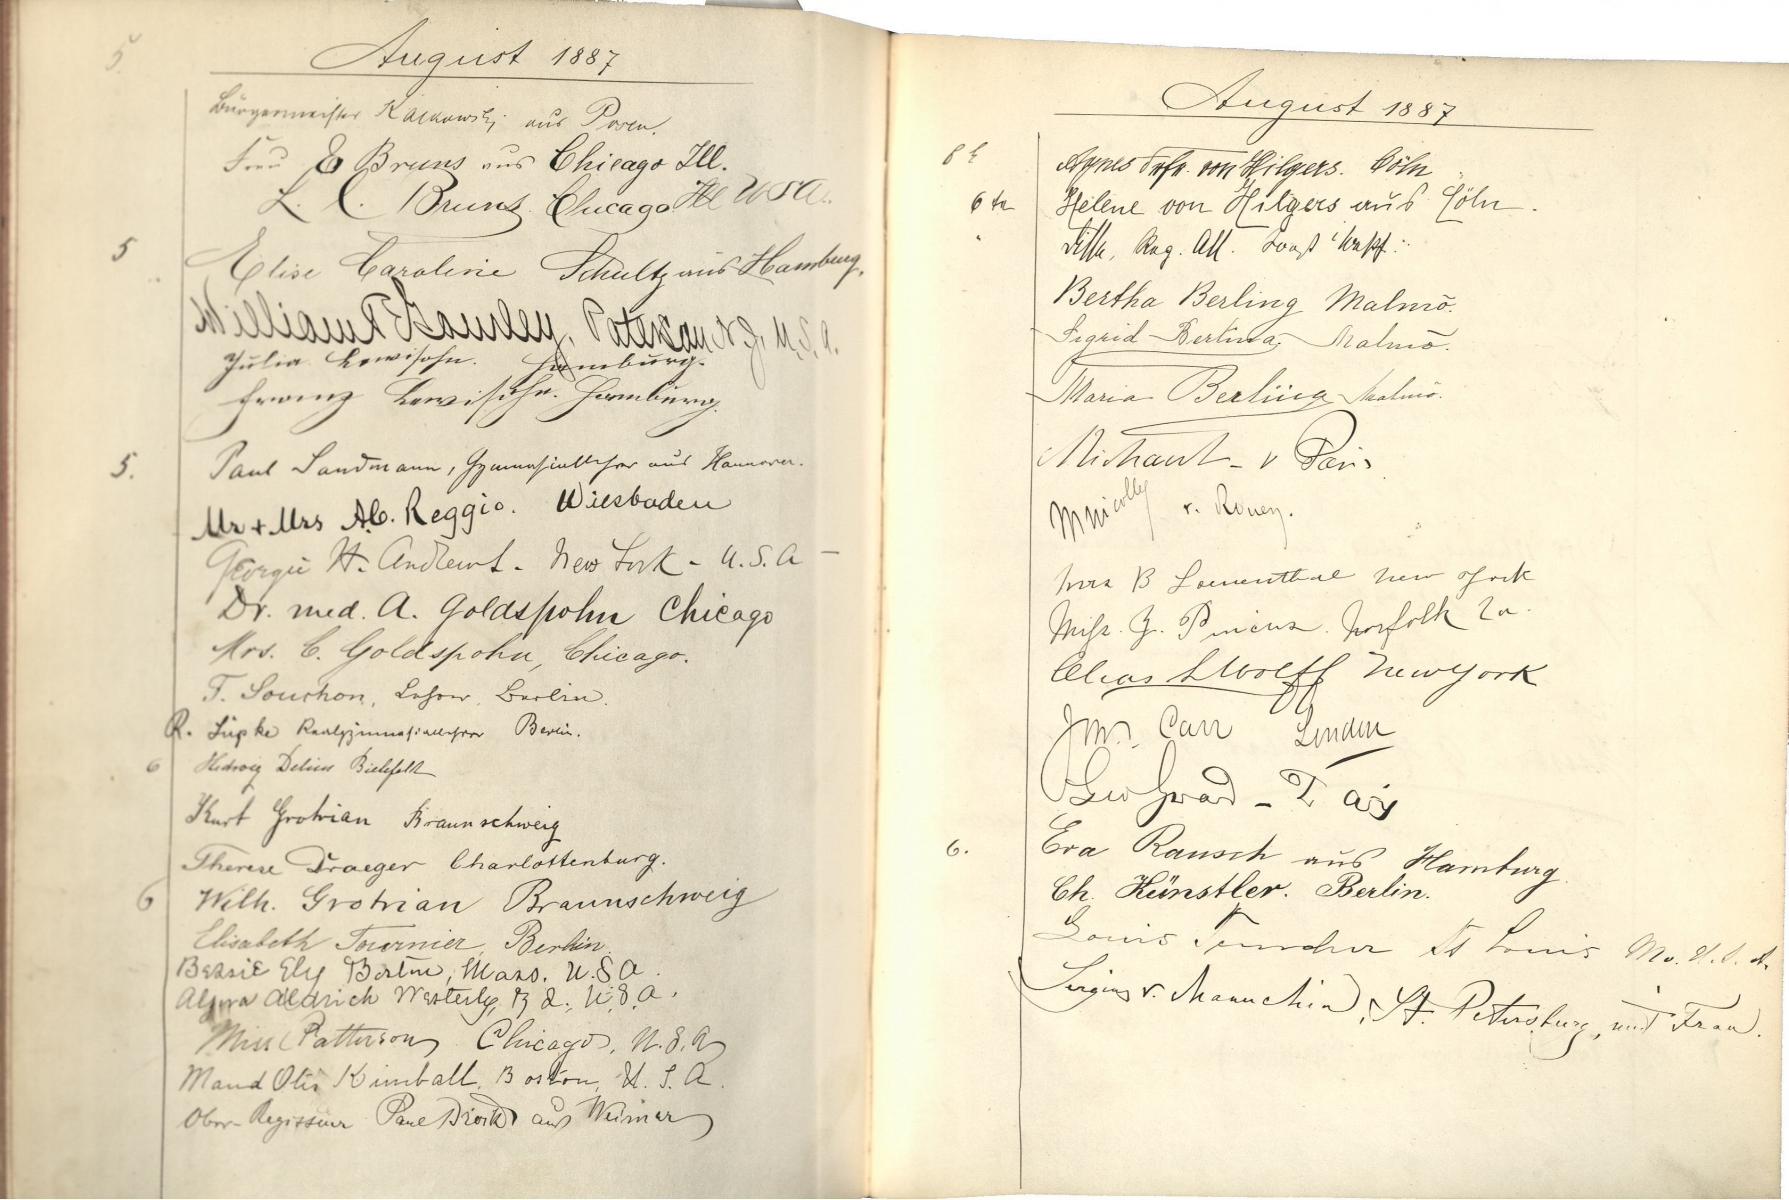 5.
August 1887
Bürgermeister Kalkowski aus Posen.
Frau E Bruns aus Chicago Ill.
L. C. Bruns. Chicago Ill USA.
5
Elise Caroline Schultz aus Hamburg.
William T Gourley, Paterson N. J. U. S. A.
Julia Lewisohn. Hamburg.
Franz Lewisohn. Hamburg.
5. Paul Sandmann, Gymnasiallehrer aus Hannover.
Mr + Mrs Ab. Reggio. Wiesbaden
Georgie H. Andrews - New York - U.S.A -
Dr. med. A. Goldspohn Chicago
Mrs. C. Goldspohn, Chicago.
F. Souchon, Lehrer, Berlin.
R. Lüpke Realgymnasiallehrer Berlin.
6 Hedwig Delius Bielefeld
Kurt Grotrian Braunschweig
Therese Draeger Charlottenburg.
6 Wilh. Grotrian Braunschweig
Elisabeth Tournier, Berlin.
Bessie Ely Boston, Mass. U.S.A.
Aldrich Westerly, R. I., U.S.A.
Miss Patterson Chicago, U.S.A
Maud Otis Kimball, Boston, U.S.A.
Ober-Regisseur Paul Brock aus Weimar
August 1887
Agnes Frfr. von Hilgers. Cöln
6 ta Helene von Hilgers aus Cöln.
Reg.
Bertha Berling Malmö.
Sigrid Berling Malmö.
Maria Berling Malmö.
Michaut - v Paris
v. Rouen.
Mrs B Lowenthal New York
Miss. J. Pincus. Norfolk Va.
Elias L Wolff New York
Jms. Carr London
Eva Rausch aus Hamburg.
6.
Ch. Künstler. Berlin.
Louis St Louis Mo. U.S.A.
Sergius v. Manuchin, St. Petersburg, mit Frau.